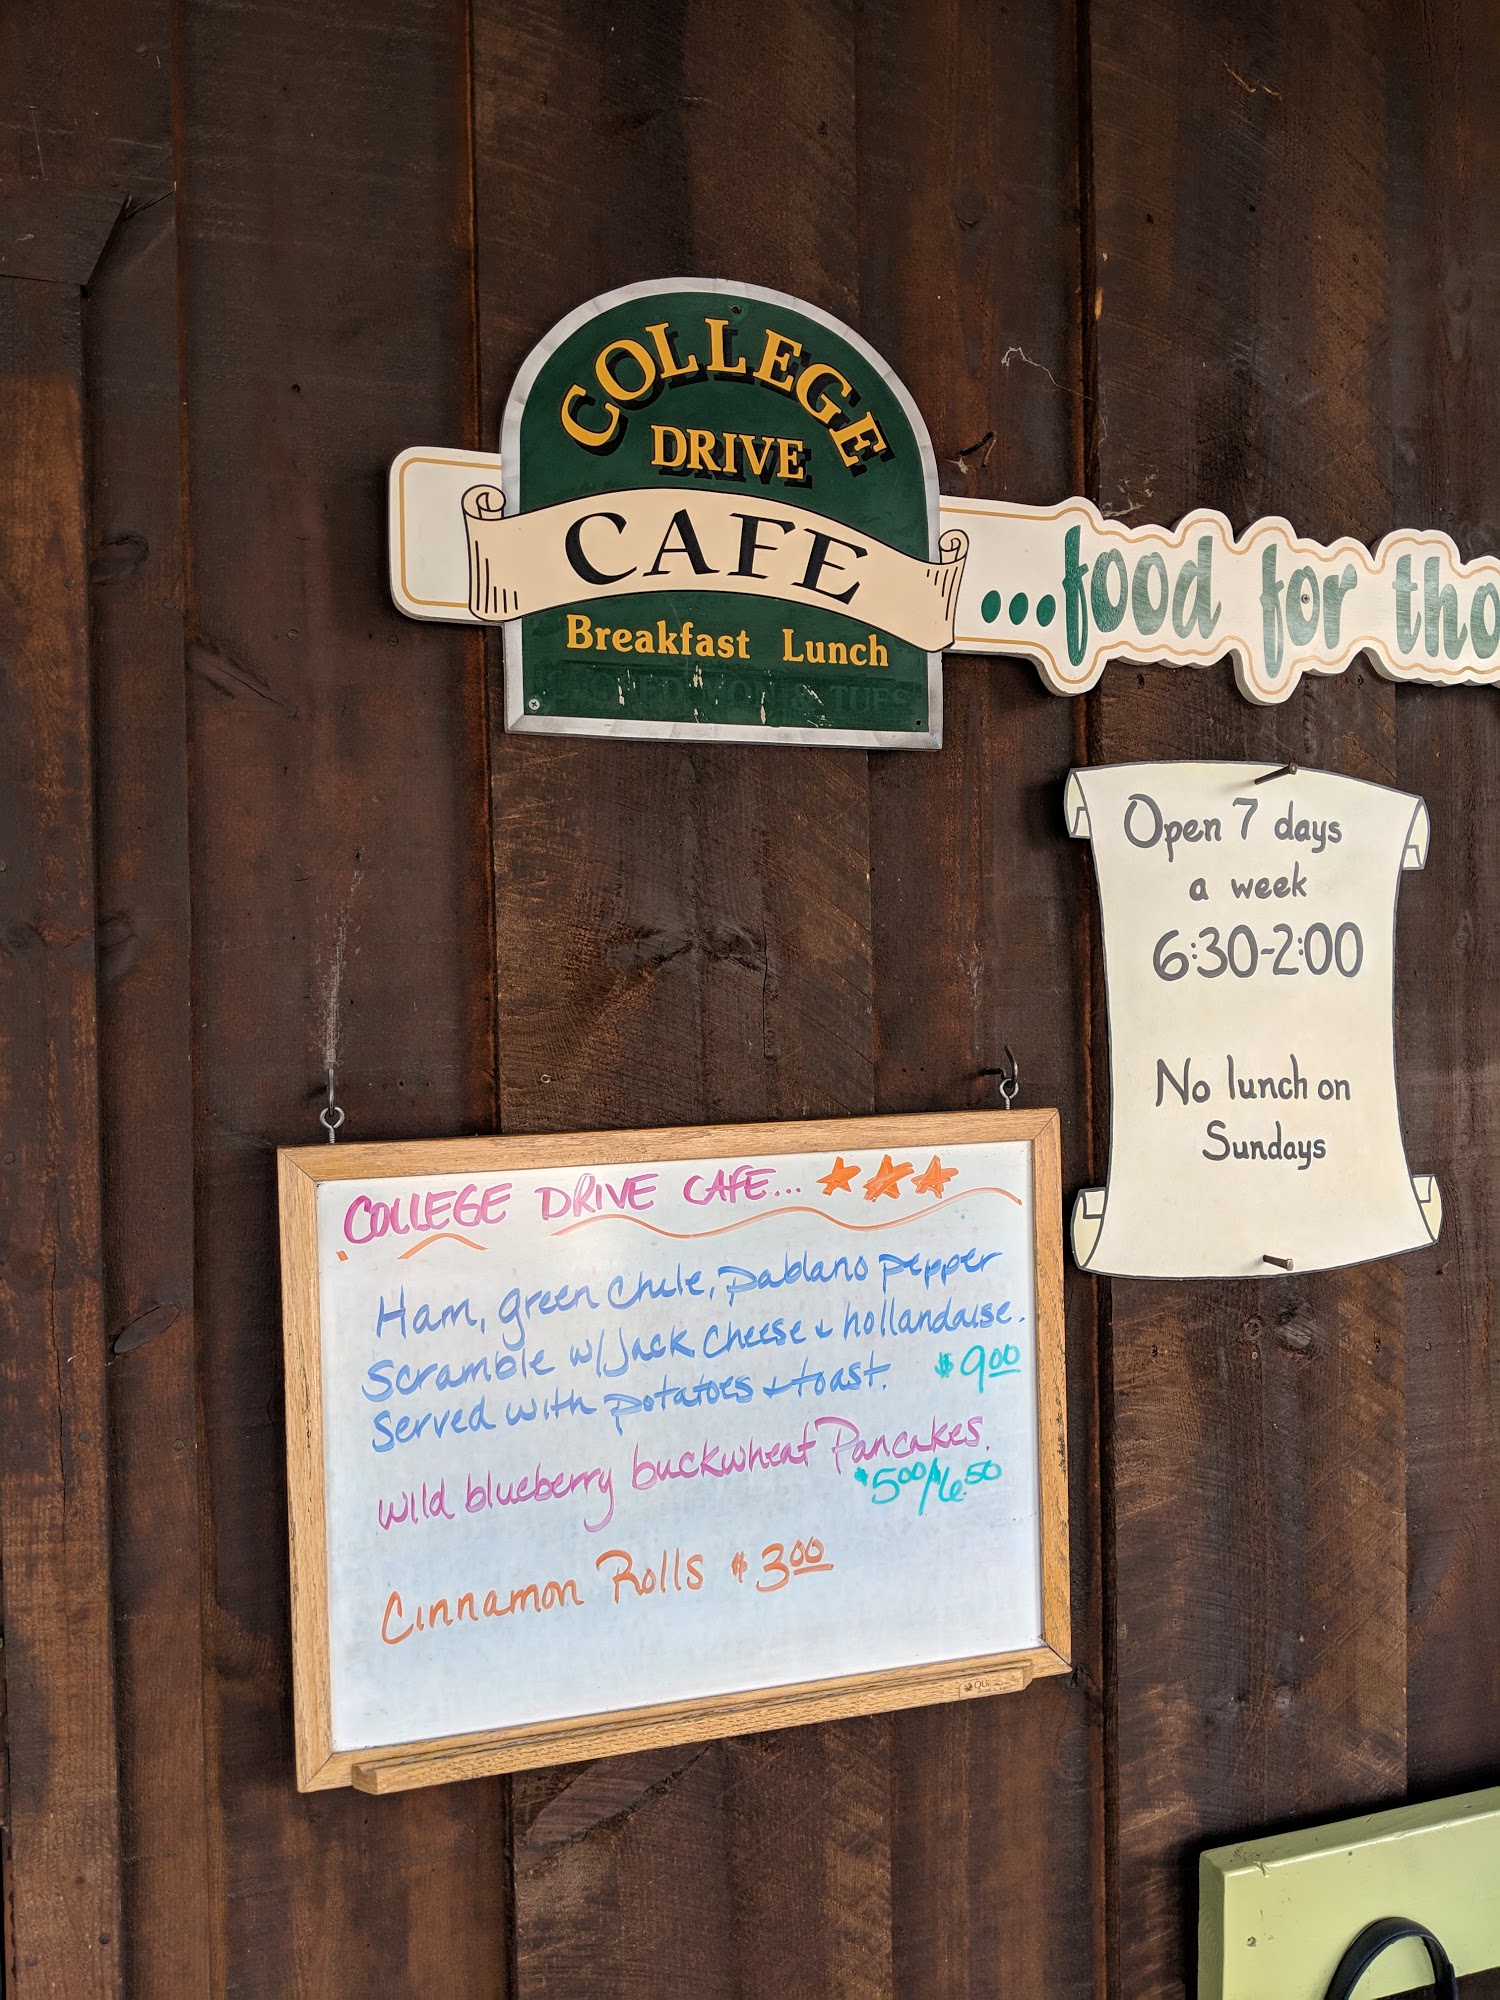 COLLEGE
DRIVE
CAFE
Breakfast Lunch
CLOSED MON & TUES
...food for tho
Open 7 days
a week
6:30-2:00
No lunch on
Sundays
COLLEGE DRIVE CAFE...
Ham, green chile, pablano pepper
Scramble w/Jack cheese & hollandaise.
Served with potatoes & toast. $9.00
wild blueberry buckwheat Pancakes.
$5.00/$6.50
Cinnamon Rolls $3.00